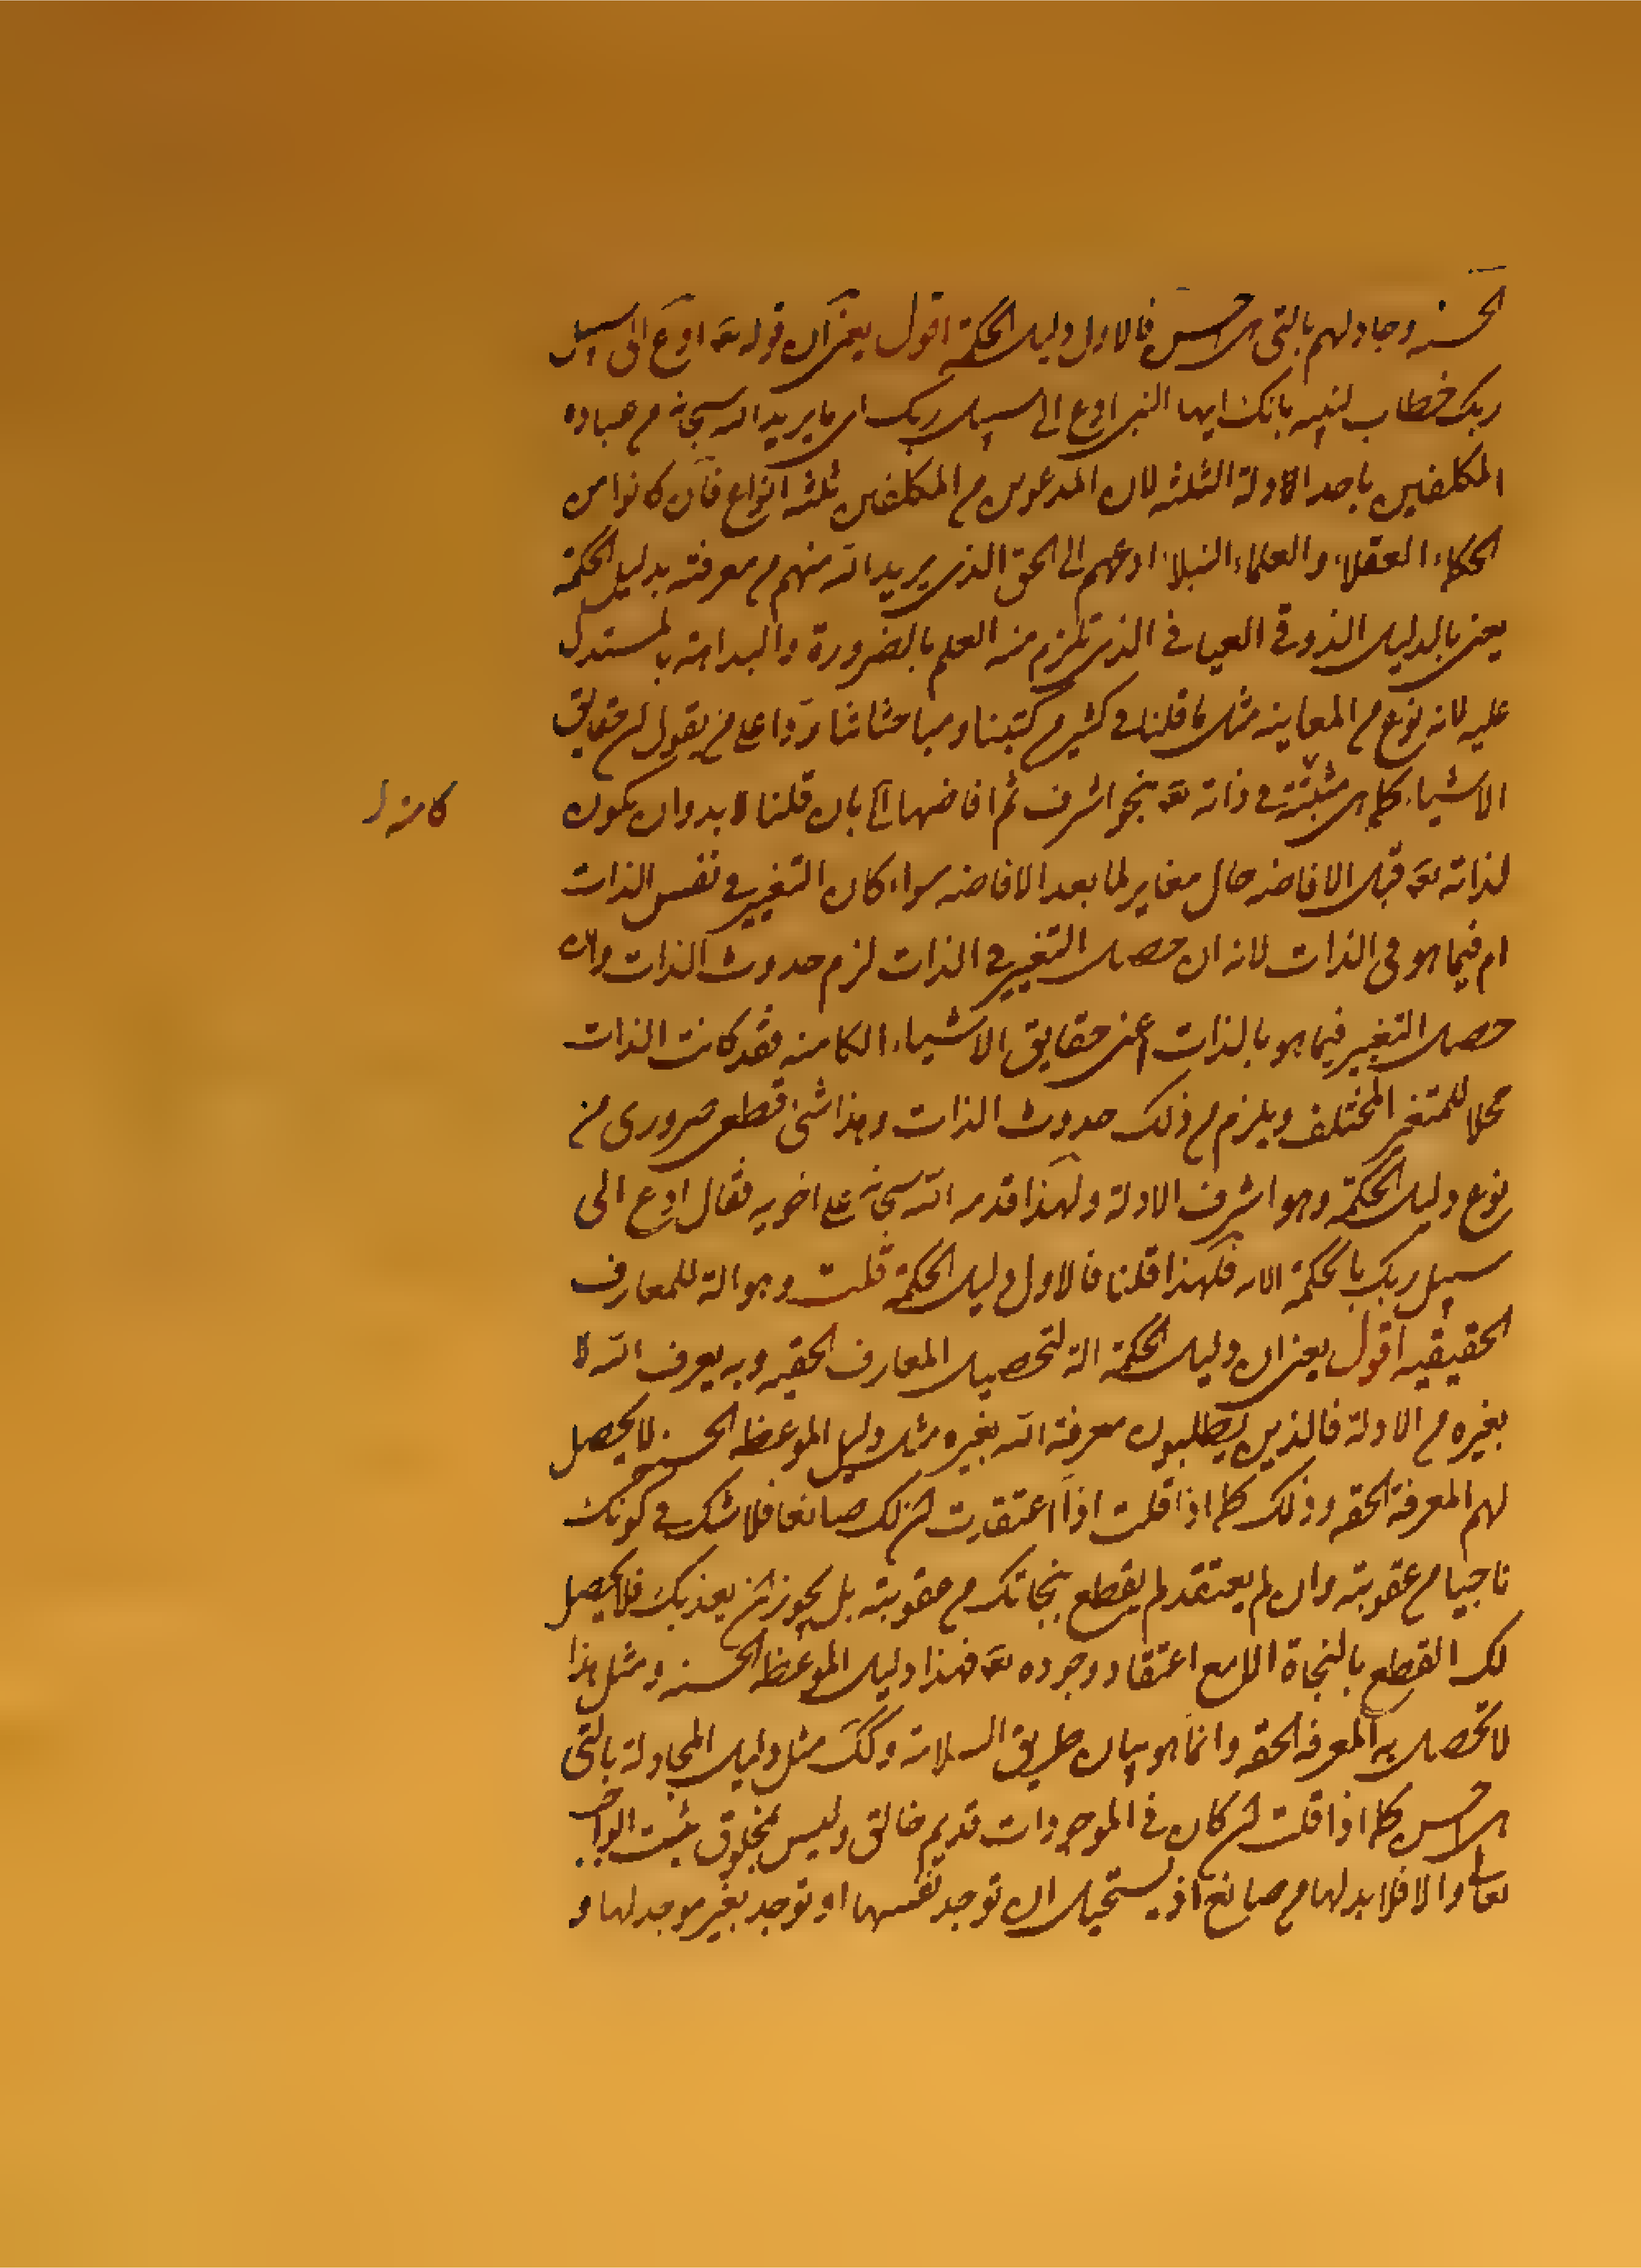 الحسنه وجادلهم بالتى هى احسن فالاول دليل الحكمة اقول يعنى ان قوله تعه ادع الى سبيل
ربك خطاب لنبيه بانك ايها النبى ادع الى سبيل ربك اى ما يريد الله سبحانه م عباده
المكلفين باحد الادلة الثلثه لان المدعوين م المكلفين ثلثه انواع فان كانوا من
الحكماء العقلاء والعلماء النبلاء ادعهم الى الحق الذى يريد الله منهم م معرفته بدليل الحكمة
يعنى بالدليل الذوقى العيانى الذى تلزم منه العلم بالضرورة والبداهة بالمستدل
عليه لانه نوع م المعاينه مثل ما قلنا فى كثير م كتبنا ومباحثاتنا ردا على من يقول ان حقايق
الاشياء كلها هى مثبتة فى ذاته تعه بنحو اشرف ثم افاضها بان قلنا لابد وان يكون
كامنه
لذاته تعه قبل الافاضه حال مغاير لما بعد الافاضه سواء كان التغيير فى نفس الذات
ام فيما هو فى الذات لانه ان حصل التغيير فى الذات لزم حدوث الذات وان
حصل التغيير فيما هو بالذات اعنى حقايق الاشياء الكامنه فقد كانت الذات
محلا للمتغير المختلف ويلزم م ذلك حدوث الذات وهذا شئ قطعى ضرورى من
نوع دليل الحكمة وهو اشرف الادلة ولهذا قدمه الله سبحانه على اخويه فقال ادع الى
سبيل ربك بالحكمة الايه فلهذا قلنا فالاول دليل الحكمة قلت وهو الة للمعارف
الحقيقيه اقول يعنى ان دليل الحكمة الة لتحصيل المعارف الحقيه وبه يعرف الله لا
بغيره م الادلة فالذين يطلبون معرفة الله بغيره مثل دليل الموعظه الحسنه لا يحصل
لهم المعرفة الحقه وذلك كما اذا قلت اذا اعتقدت ان لك صانعا فلا شك فى كونك
ناجيا م عقوبته وان لم يعتقد لم يقطع بنجاتك م عقوبته بل يجوز ان يعذبك فلا يحصل
لك القطع بالنجاة الا مع اعتقاد وجوده تعه فهذا دليل الموعظه الحسنه ومثل هذا
لا تحصل به المعرفه الحقه وانما هو بيان طريق السلامة وكك مثل دليل المجادلة بالتى
هى احسن كما اذا قلت ان كان فى الموجودات قديم خالق وليس بمخلوق يثبت الواجب
تعالى والا فلا بد لها م صانع اذ يستحيل ان توجد نفسها او توجد بغير موجد لها و